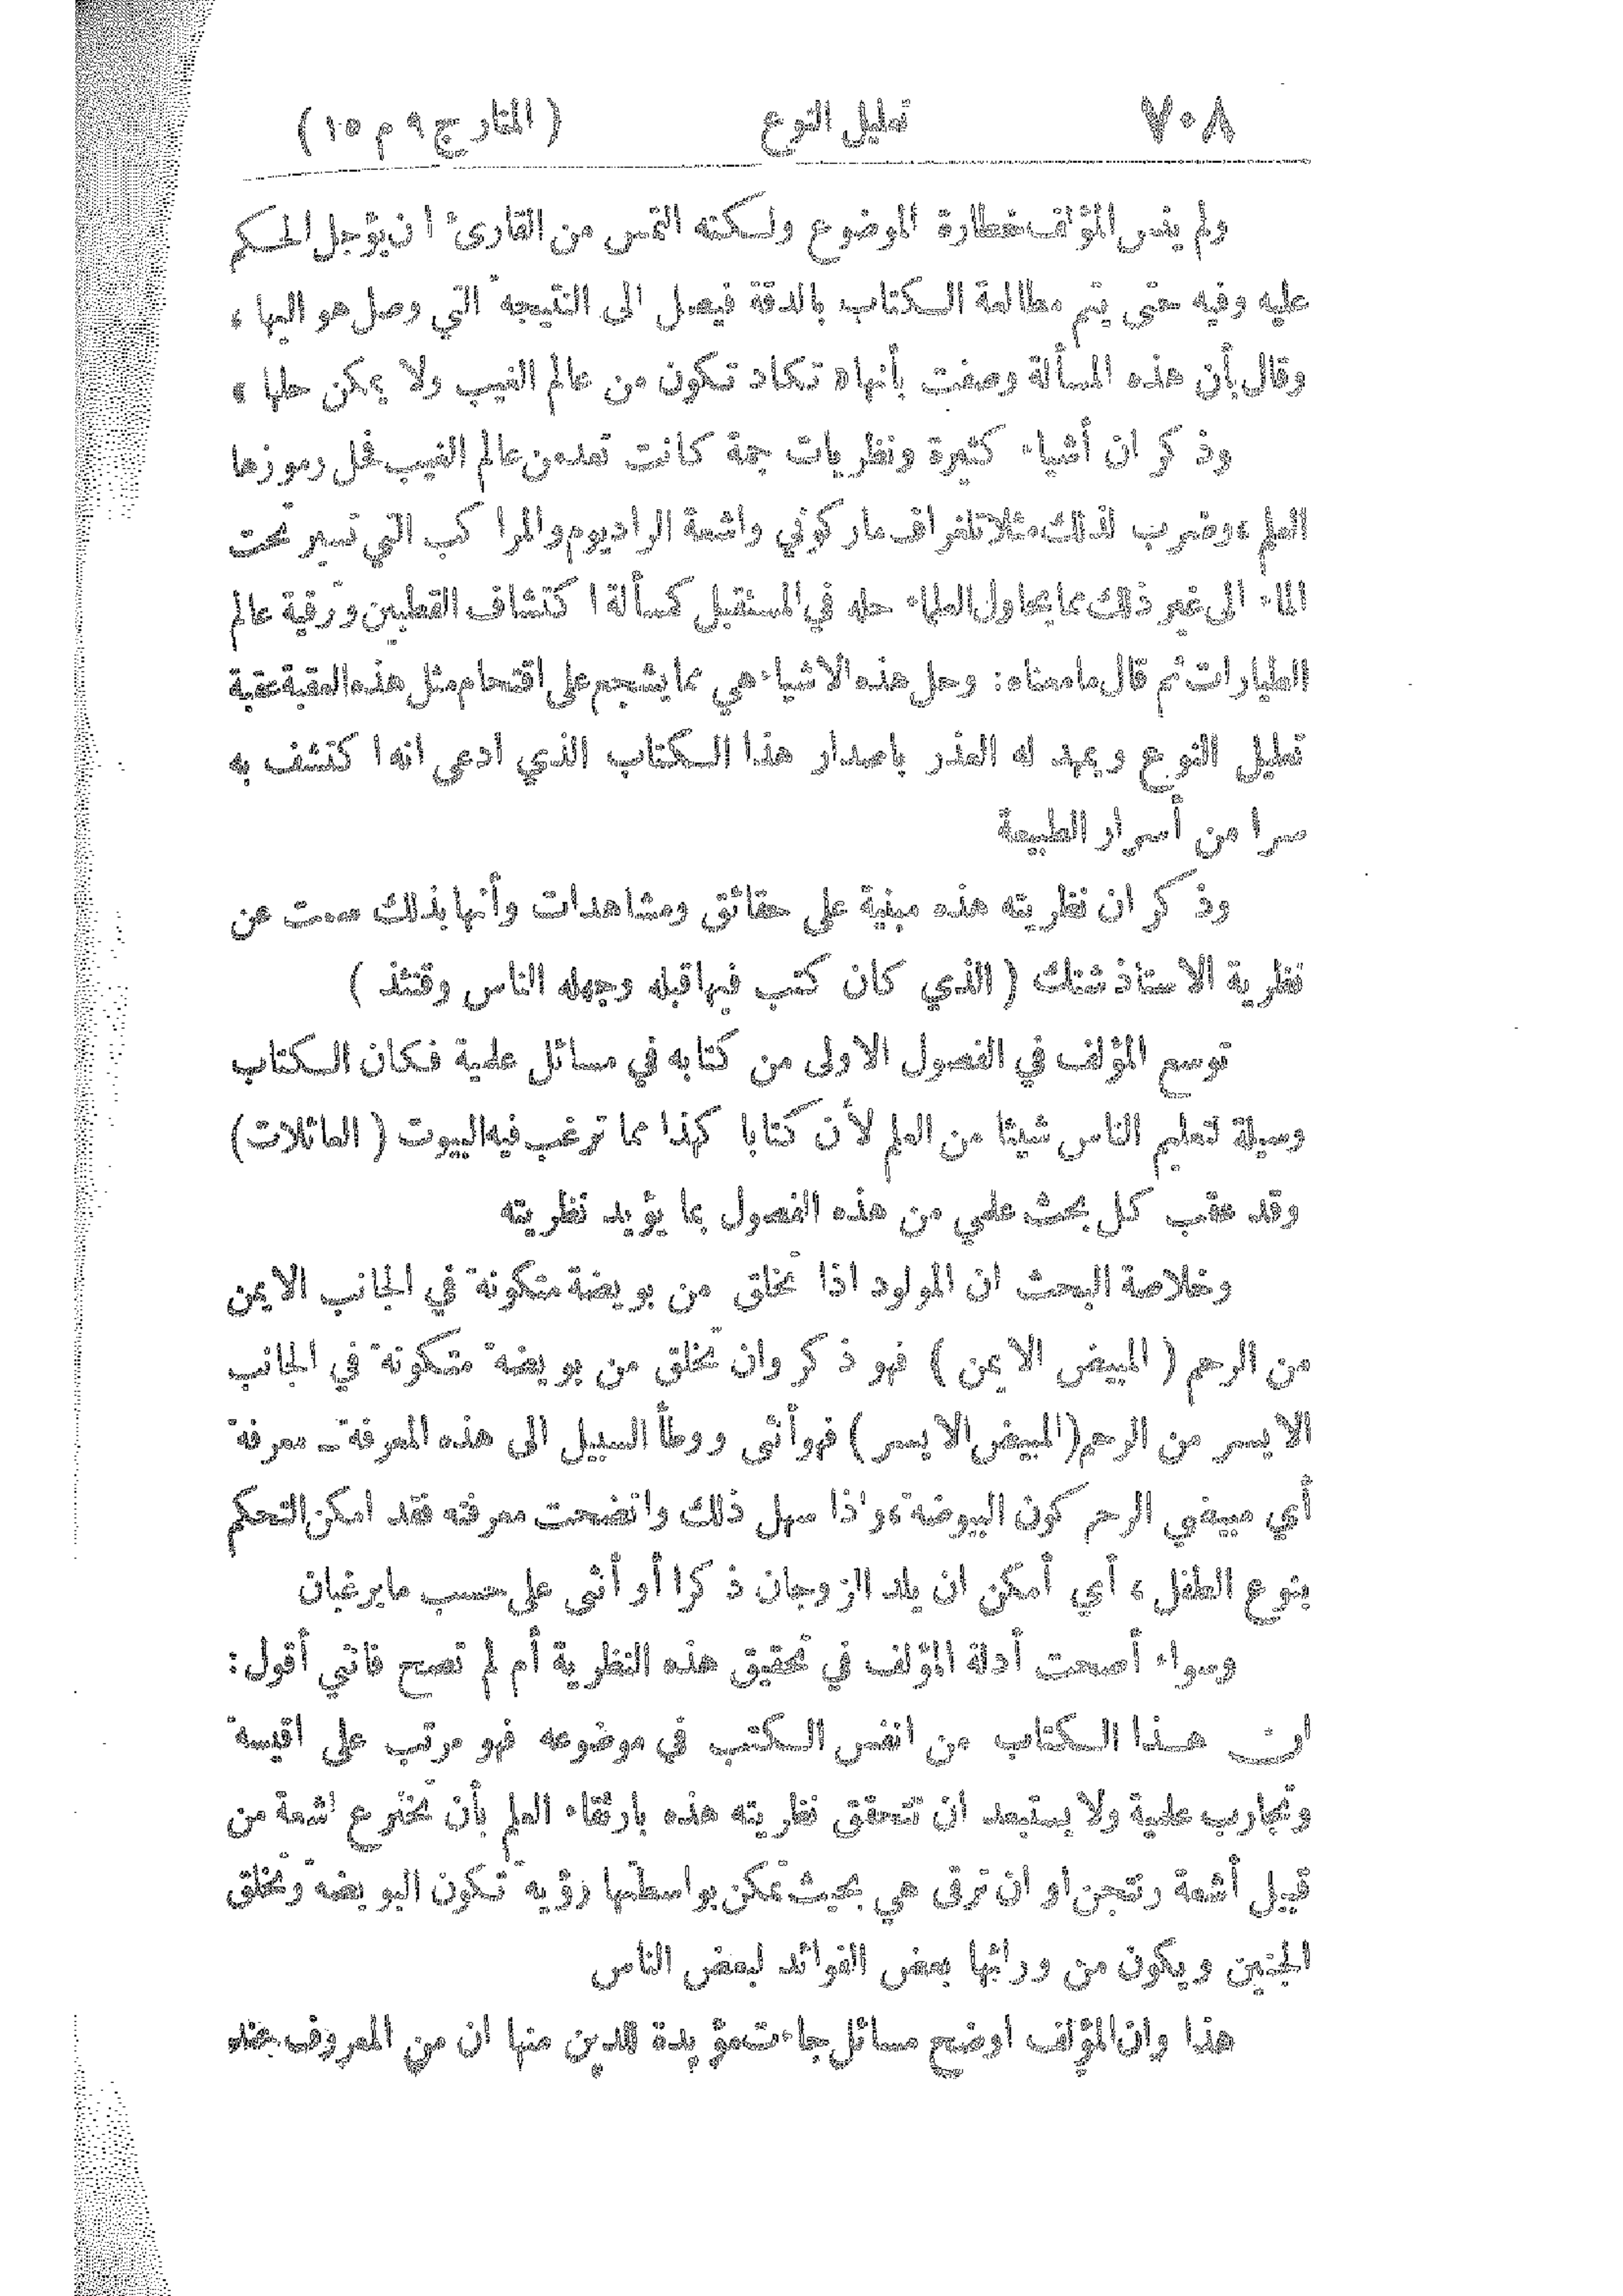 ٧٠٨ تعليل النوع ( المنار ج ٩ م ١٥ )
ولم ينس المؤلف خطارة الموضوع ولكنه التمس من القارئ ان يؤجل الحكم
عليه وفيه حتى يتم مطالعة الكتاب بالدقة فيصل الى النتيجة التي وصل هو اليها ،
وقال بأن هذه المسألة وصفت بأنها « تكاد تكون من عالم الغيب ولا يمكن حلها »
وذكر ان أشياء كثيرة ونظريات جمة كانت تعد من عالم الغيب فحل رموزها
العلم ، وضرب لذلك مثلا تلغراف ماركوني واشعة الراديوم والمراكب التي تسير تحت
الماء الى غير ذلك مما يحاول العلماء حله في المستقبل كمسألة اكتشاف القطبين وترقية عالم
الطيارات ثم قال ما معناه : وحل هذه الاشياء هي مما يشجع على اقتحام مثل هذه العقبة عقبة
تعليل النوع ويمهد له العذر باصدار هذا الكتاب الذي ادعى انه اكتشف به
سرا من أسرار الطبيعة
وذكر ان نظريته هذه مبنية على حقائق ومشاهدات وأنها بذلك سمت عن
نظرية الاستاذ شنك ( الذي كان كتب فيها قبله وجهله الناس وقتئذ )
توسع المؤلف في الفصول الاولى من كتابه في مسائل علمية فكان الكتاب
وسيلة لتعليم الناس شيئا من العلم لأن كتابا كهذا مما ترغب فيه البيوت ( العائلات )
وقد عقب كل بحث علمي من هذه الفصول بما يؤيد نظريته
وخلاصة البحث ان المولود اذا تخلق من بويضة متكونة في الجانب الايمن
من الرحم ( المبيض الايمن ) فهو ذكر وان تخلق من بويضة متكونة في الجانب
الايسر من الرحم ( المبيض الايسر ) فهو أنثى ووطأ السبيل الى هذه المعرفة ــ معرفة
أي مبيضي الرحم كون البيوضة ، واذا سهل ذلك واتضحت معرفته فقد امكن التحكم
بنوع الطفل ، أي أمكن ان يلد الزوجان ذكرا أو أنثى على حسب ما يرغبان
وسواء أصحت أدلة المؤلف في تحقيق هذه النظرية أم لم تصح فاني أقول :
ان هذا الكتاب من انفس الكتب في موضوعه فهو مرتب على اقيسة
وتجارب علمية ولا يستبعد ان تتحقق نظريته هذه بارتقاء العلم بأن تخترع اشعة من
قبيل أشعة رنتجن او ان ترقى هي بحيث تمكن بواسطتها رؤية تكون البويضة وتخلق
الجنين ويكون من ورائها بعض الفوائد لبعض الناس
هذا وان المؤلف اوضح مسائل جاءت مؤيدة للدين منها ان من المعروف عند